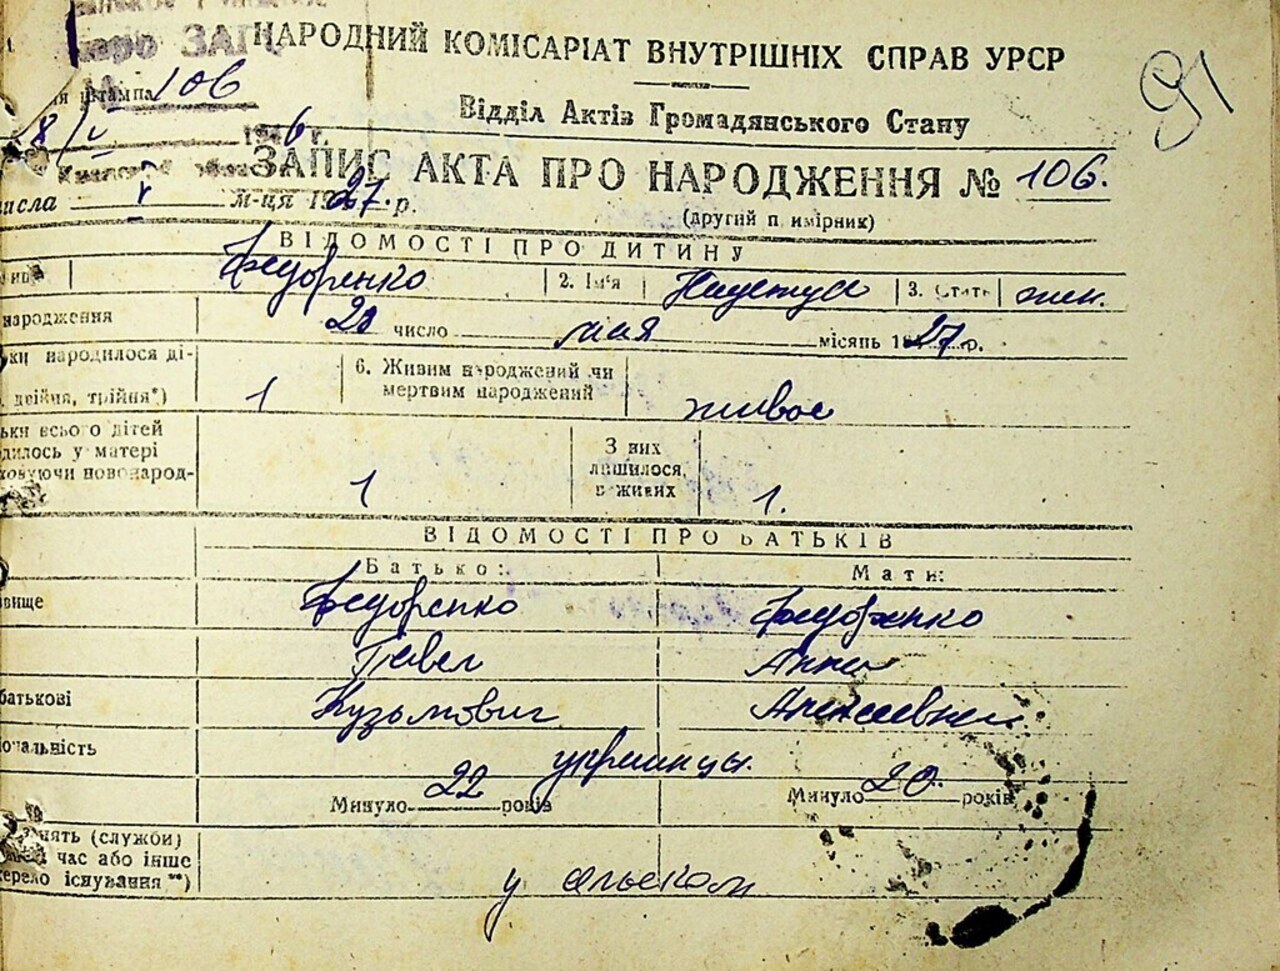 ЗАГ
НАРОДНИЙ КОМІСАРІАТ ВНУТРІШНІХ СПРАВ УРСР
91
штампа 106
Відділ Актів Громадянського Стану
8/V 1946 г.
ЗАПИС АКТА ПРО НАРОДЖЕННЯ № 106.
числа V м-ця 1927. р.
(другий п имірник)
ВІДОМОСТІ ПРО ДИТИНУ
Федоренко 2. Ім'я 3. Стать жен.
народження число мая місяць 1927 р.
ки народилося ді-
двійня, трійня*) 1 6. Живим народжений чи мертвим народжений живое
ьки всьо о дітей
дилось у матері
ховуючи новонарод- 1 З них лишилося, в живих 1.
ВІДОМОСТІ ПРО БАТЬКІВ
Батько: Мати:
звище Федоренко Федоренко
Павел Анна
батькові Кузьмович Алексеевна
ональність украинцы.
Минуло 22 років Минуло 20. років
нять (служби)
час або інше
жерело існування **)